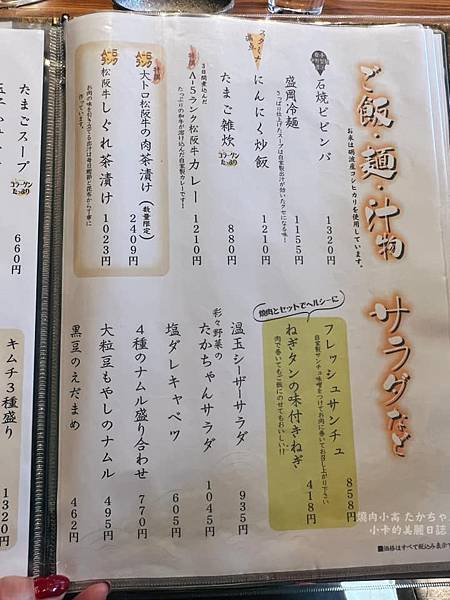 ご飯・麺・汁物
お米は砺波産コシヒカリを使用しています。
石焼ビビンバ
1320円
盛岡冷麺
さっぱり仕上げたスープは自家製出汁が効いたクセになる味!
1155円
スタミナ満点
にんにく炒飯
1210円
たまご雑炊
コラーゲンたっぷり
880円
3日間煮込んだ
A-5ランク松阪牛カレー
たっぷりの和牛が溶け込んだ自家製カレーです!
1210円
A-5ランク
大トロ松阪牛の肉茶漬け(数量限定)
2409円
A-5ランク
松阪牛しぐれ茶漬け
お肉の味を引き立てる出汁は毎日鰹節と昆布から丁寧に作っています。
1023円
サラダなど
焼肉とセットでヘルシーに
フレッシュサンチュ
自家製サンチュ味噌をつけてお肉に巻いてお召し上がり下さい
858円
ねぎタンの味付きねぎ
肉で巻いてもご飯にのせてもおいしい!!
418円
温玉シーザーサラダ
935円
彩々野菜の
たかちゃんサラダ
1045円
塩ダレキャベツ
605円
4種のナムル盛り合わせ
770円
大粒豆もやしのナムル
495円
黒豆のえだまめ
462円
■価格はすべて税込み表示で
たまごスープ
コラーゲンたっぷり
660円
キムチ3種盛り
1320円
燒肉小高 たかちゃ
小卡的美麗日誌